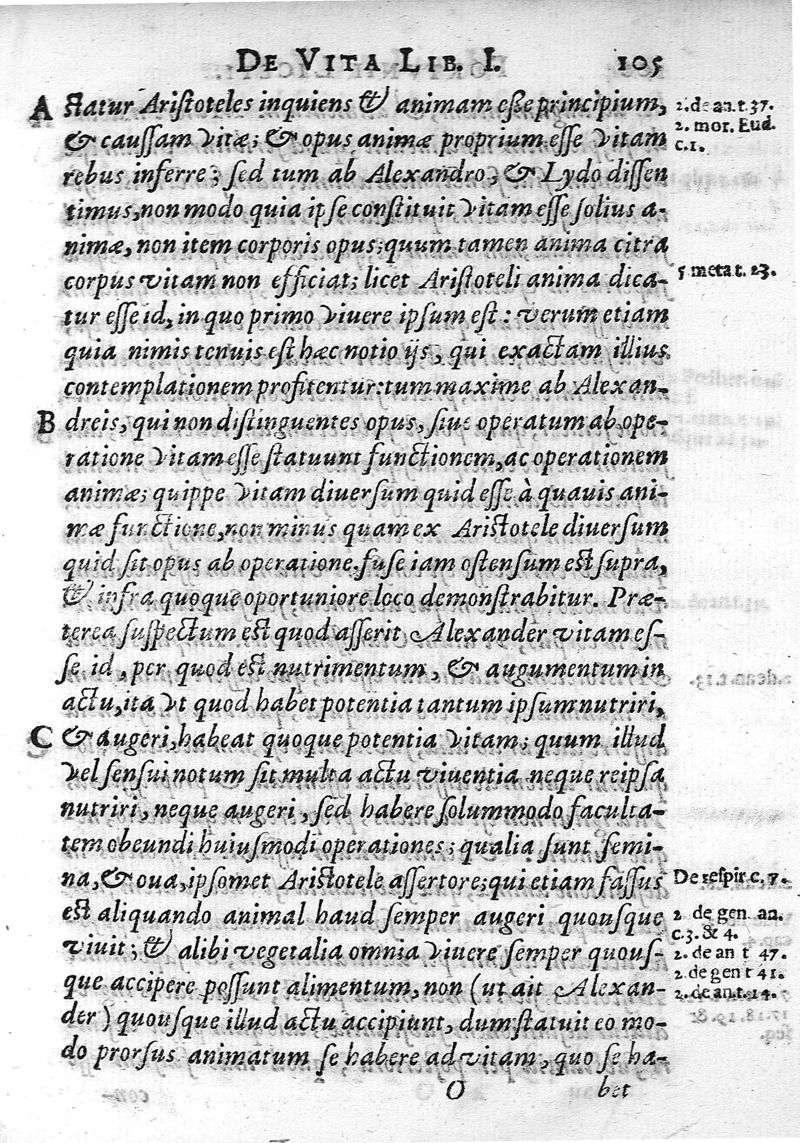 DE VITA LIB. I. 105
A ſtatur Ariſtoteles inquiens & animam eſſe principium, 2. de an. t. 37.
& cauſſam vitæ; & opus animæ proprium eſſe vitam 2. mor. Eud.
rebus inferre; ſed tum ab Alexandro, & Lydo diſſen c. 1.
timus, non modo quia ipſe conſtituit vitam eſſe ſolius a-
nimæ, non item corporis opus; quum tamen anima citra
corpus vitam non efficiat; licet Ariſtoteli anima dica- 5 meta t. 23.
tur eſſe id, in quo primo viuere ipſum eſt: verum etiam
quia nimis tenuis eſt hæc notio ijs, qui exactam illius
contemplationem profitentur: tum maxime ab Alexan-
B dreis, qui non diſtinguentes opus, ſiue operatum ab ope-
ratione vitam eſſe ſtatuunt functionem, ac operationem
animæ; quippe vitam diuerſum quid eſſe à quauis ani-
mæ functione, non minus quam ex Ariſtotele diuerſum
quid ſit opus ab operatione. fuſe iam oſtenſum eſt ſupra,
& infra quoque oportuniore loco demonſtrabitur. Præ-
terea ſuſpectum eſt quod aſſerit Alexander vitam eſ-
ſe id, per quod eſt nutrimentum, & augumentum in
actu, ita vt quod habet potentia tantum ipſum nutriri,
C & augeri, habeat quoque potentia vitam; quum illud
vel ſenſui notum ſit multa actu viuentia neque reipſa
nutriri, neque augeri, ſed habere ſolummodo faculta-
tem obeundi huiuſmodi operationes; qualia ſunt ſemi-
na, & oua, ipſomet Ariſtotele aſſertore; qui etiam faſſus De reſpir c. 7.
eſt aliquando animal haud ſemper augeri quouſque 2 de gen. an.
c. 3. & 4.
viuit; & alibi vegetalia omnia viuere ſemper quouſ- 2. de an t 47.
que accipere poſſunt alimentum, non (ut ait Alexan- 2. de gen t 41.
2. de an. t. 14.
der) quouſque illud actu accipiunt, dum ſtatuit eo mo-
do prorſus animatum ſe habere ad vitam, quo ſe ha-
O bet